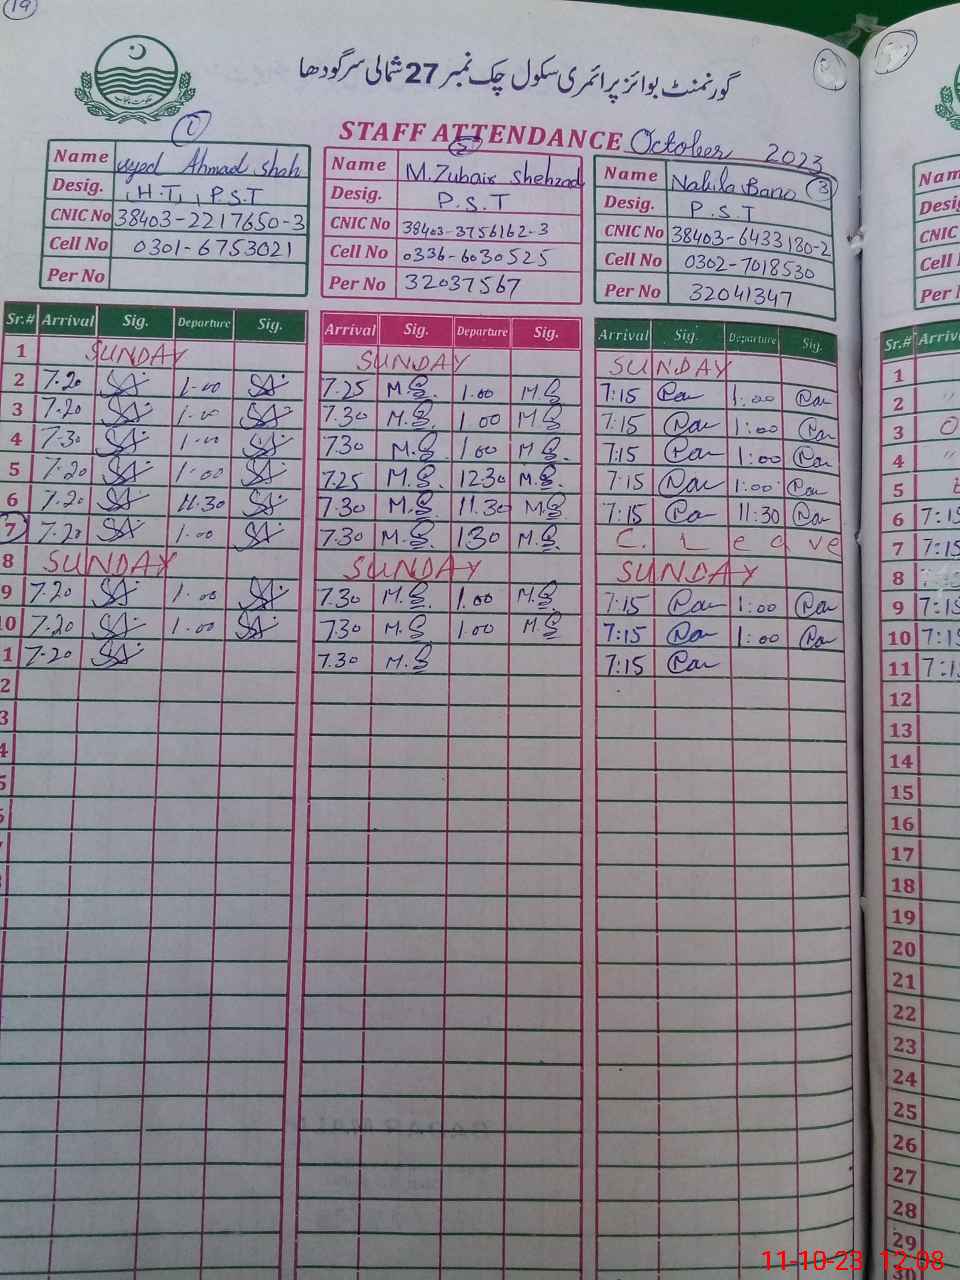 19
گورنمنٹ بوائز پرائمری سکول چک نمبر 27 شمالی سرگودھا
STAFF ATTENDANCE October 2023
Name Syed Ahmad Shah
Desig. H.T, P.S.T
CNIC No 38403-2217650-3
Cell No 0301-6753021
Per No
Name M.Zubair Shehzad
Desig. P.S.T
CNIC No 38403-3756162-3
Cell No 0336-6030525
Per No 32037567
Name Nabila Bano 3
Desig. P.S.T
CNIC No 38403-6433180-2
Cell No 0302-7018530
Per No 32041347
Sr.# Arrival Sig. Departure Sig. Arrival Sig. Departure Sig. Arrival Sig. Departure Sig.
1 SUNDAY SUNDAY SUNDAY
2 7.20 1.00 7.25 M.S. 1.00 M.S 7:15 1:00
3 7.20 1.00 7.30 M.S. 1.00 M.S 7:15 1:00
4 7.30 1.00 7.30 M.S 1.00 M.S. 7:15 1:00
5 7.20 1.00 7.25 M.S. 12.30 M.S. 7:15 1:00
6 7.20 11.30 7.30 M.S. 11.30 M.S. 7:15 11:30
7 7.20 1.00 7.30 M.S. 1.30 M.S. C. Leave
8 SUNDAY SUNDAY SUNDAY
9 7.20 1.00 7.30 M.S. 1.00 M.S. 7:15 1:00
10 7.20 1.00 7.30 M.S 1.00 M.S 7:15 1:00
1 7.20 7.30 M.S 7:15
2
3
4
5
Nam
Desig
CNIC
Cell
Per N
Sr.# Arriv
1
2
3
4
5
6 7:15
7 7:15
8
9 7:15
10 7:15
11 7:15
12
13
14
15
16
17
18
19
20
21
22
23
24
25
26
27
28
29
30
11-10-23 12.08